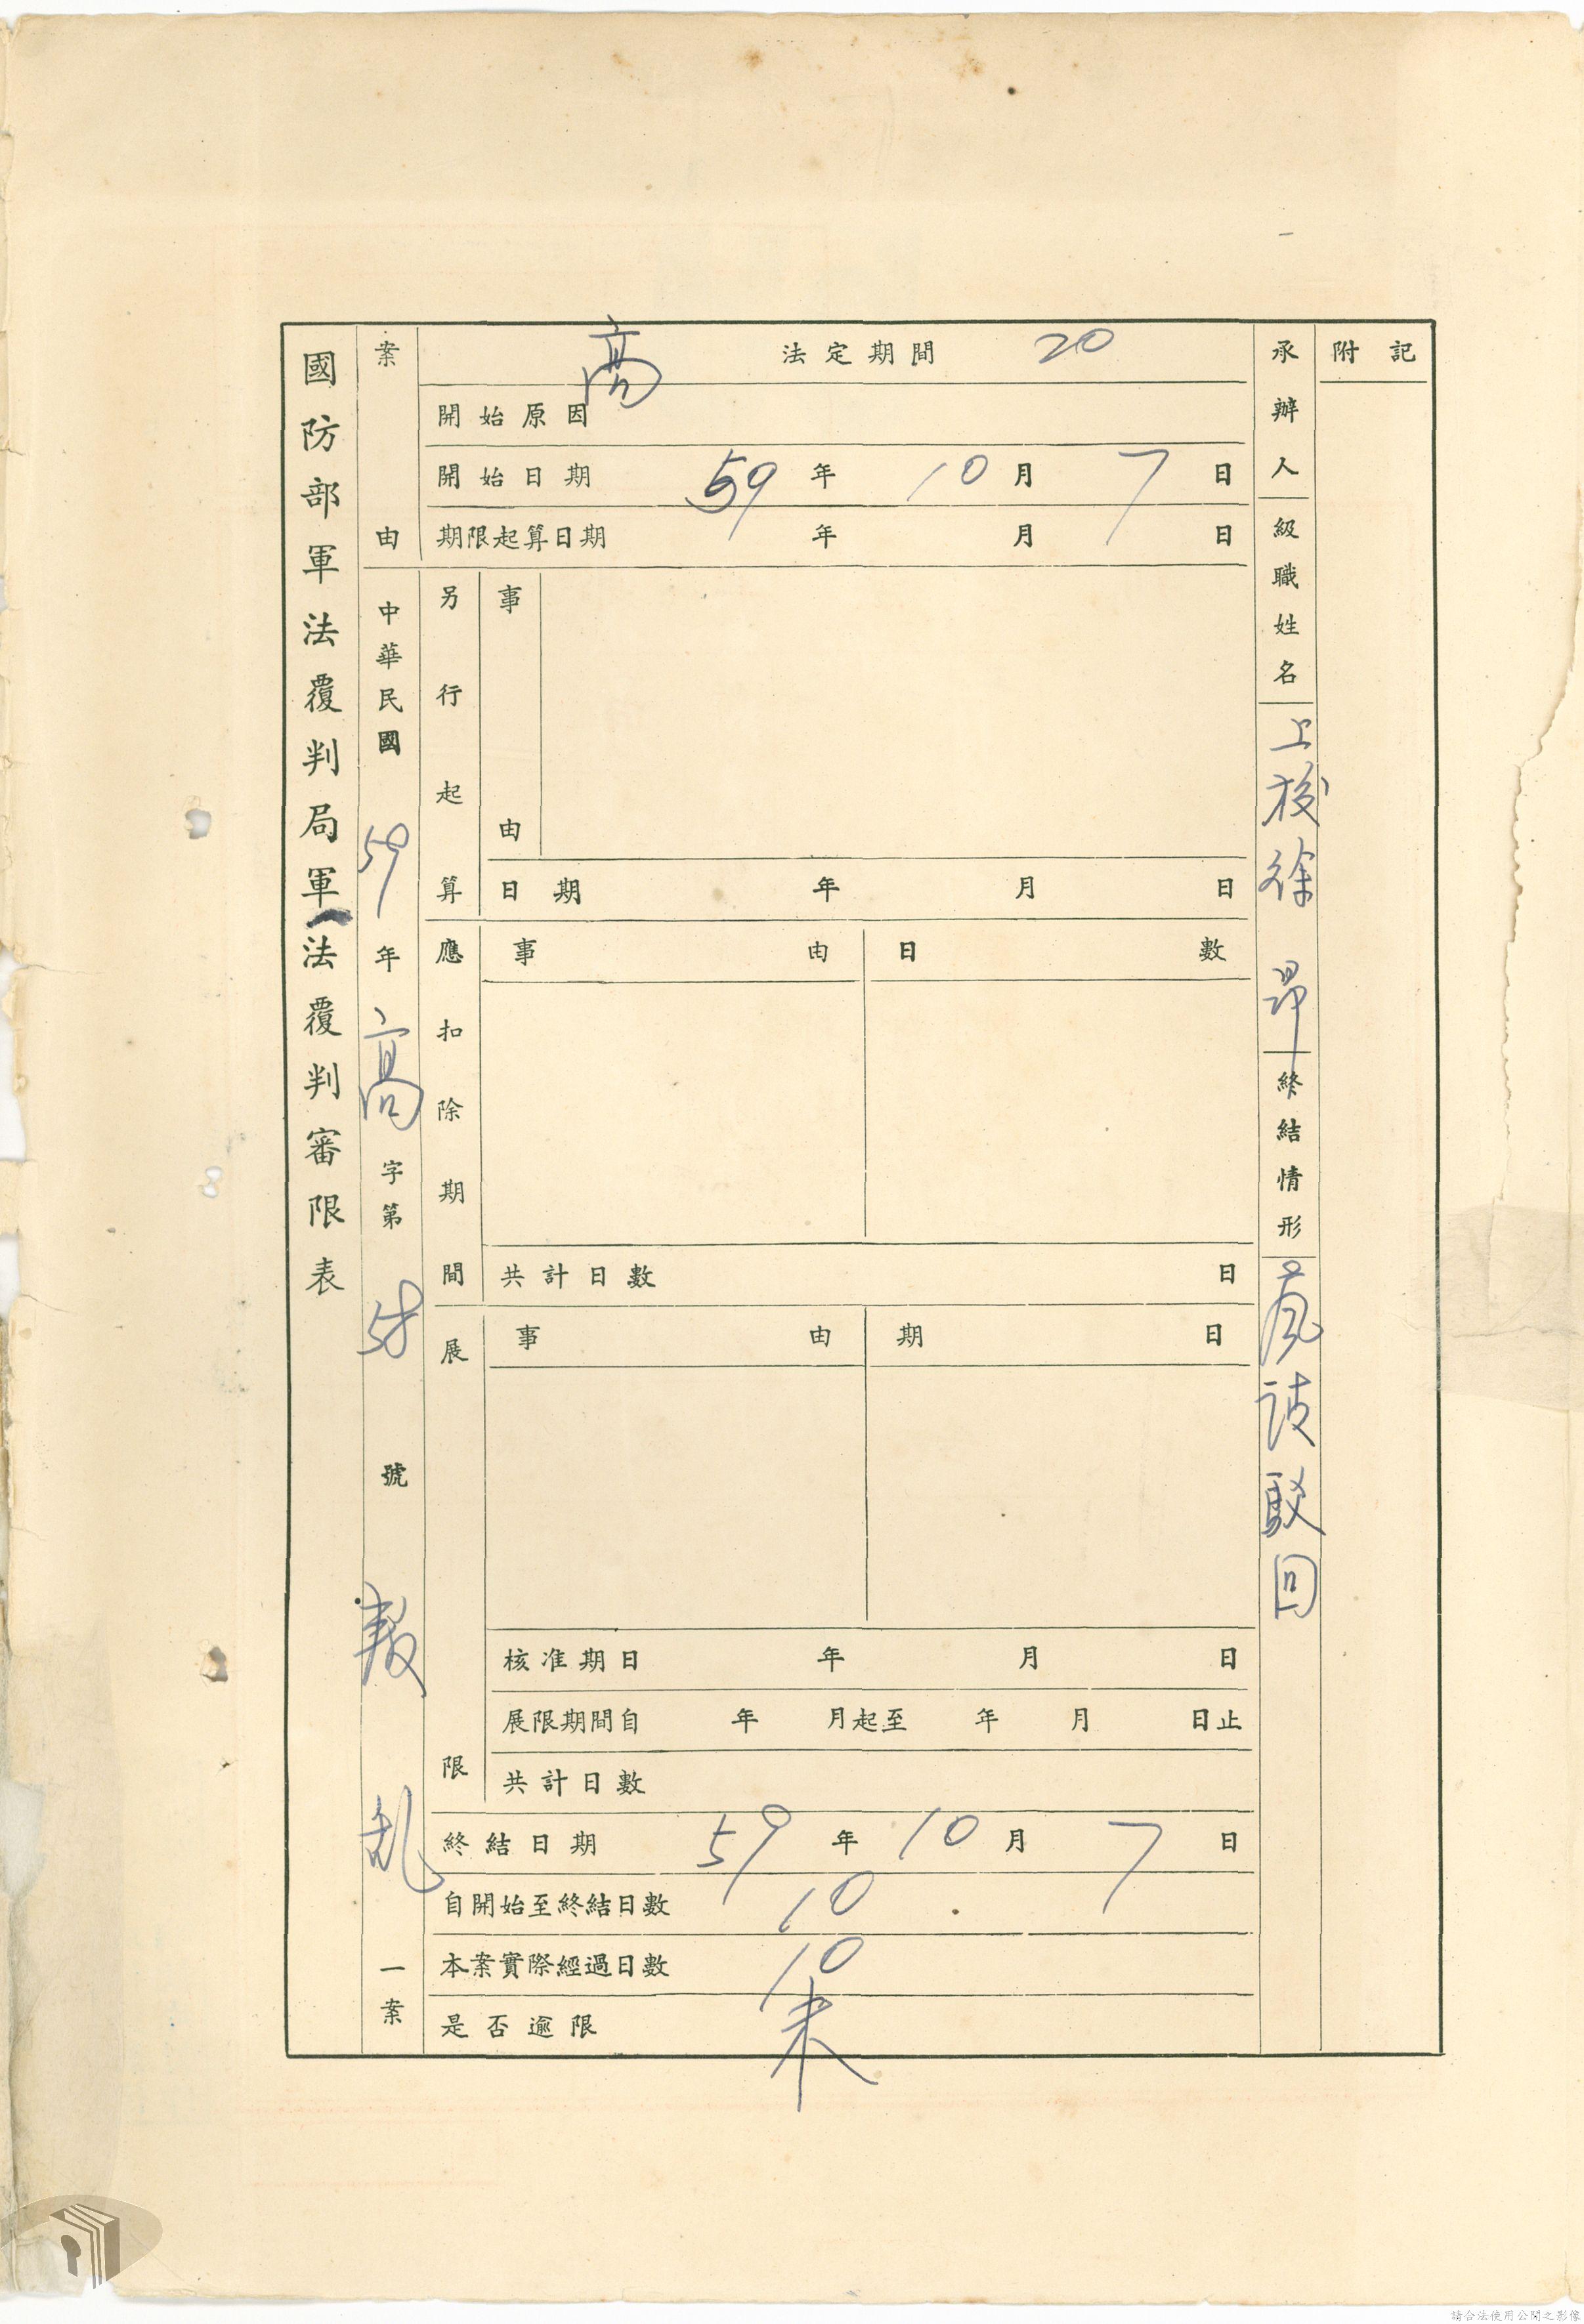 國防部軍法覆判局軍法覆判審限表
案由
中華民國59年高字第58號叛乱一案
高
法定期間 20
開始原因
開始日期 59年10月7日
期限起算日期 年 月 日
另行起算
事由
日期 年 月 日
應扣除期間
事由 日數
共計日數 日
展限
事由 期日
核准期日 年 月 日
展限期間自 年 月起至 年 月 日止
共計日數
終結日期 59年10月7日
自開始至終結日數 10
本案實際經過日數 10
是否逾限 未
承辦人
級職姓名
上校徐昂
終結情形
駁回
附記
請合法使用公開之影像